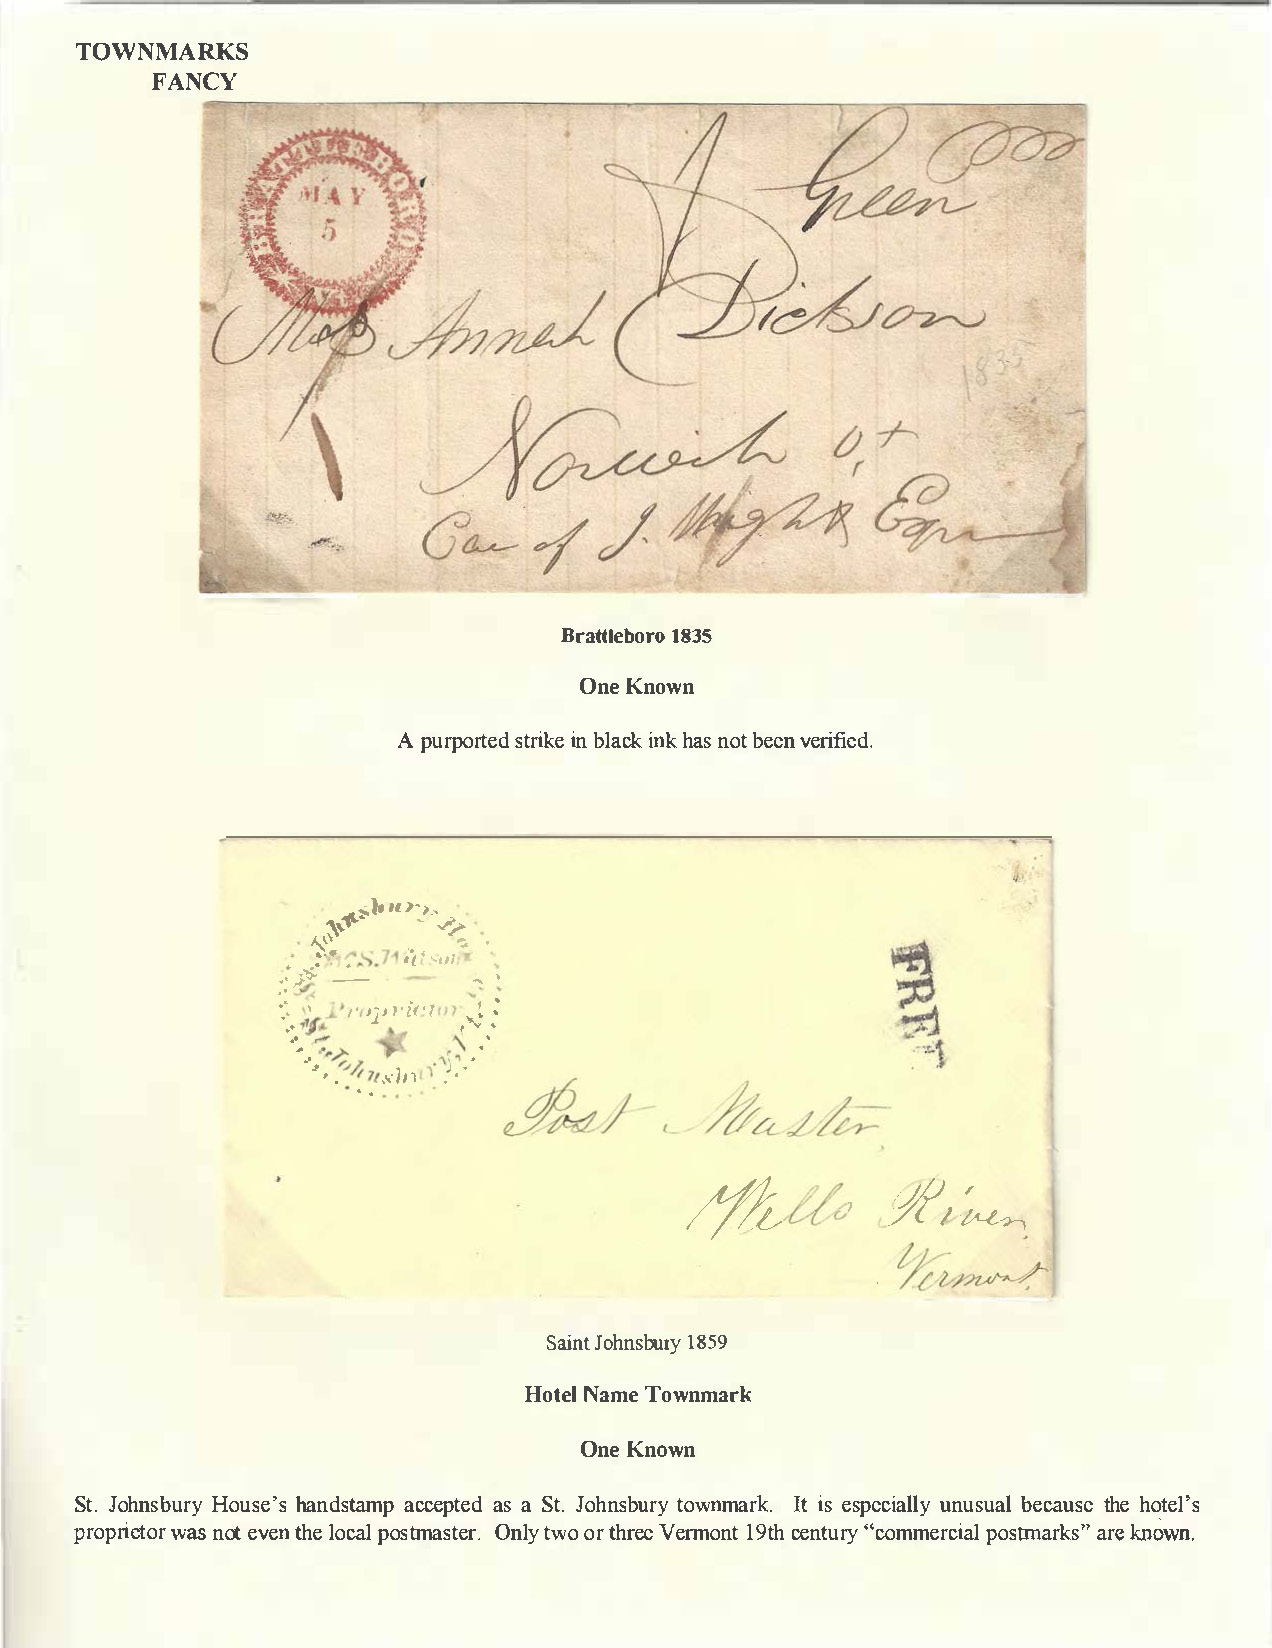 TOWNMARKS
FANCY
BRATTLEBORO
MAY
5
Green
Miss Annah Dickson
1835
Norwich
Care of J. Wright Esqr
Brattleboro 1835
One Known
A purported strike in black ink has not been verified.
St. Johnsbury Ho
S. Wilson
Proprietor
St. Johnsbury, Vt.
FREE
Post Master,
Wells River,
Vermont.
Saint Johnsbury 1859
Hotel Name Townmark
One Known
St. Johnsbury House's handstamp accepted as a St. Johnsbury townmark. It is especially unusual because the hotel's
proprietor was not even the local postmaster. Only two or three Vermont 19th century "commercial postmarks" are known.